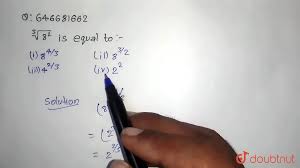 Q: 646681662
∛8² is equal to :-
(i) 8^4/3 (ii) 8^3/2
(iii) 4^2/3 (iv) 2^2
Solution
(8
= (2
= 2
doubtnut